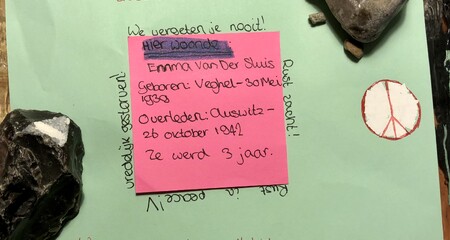 We vergeten je nooit!
Hier woonde:
Emma Van Der Sluis
Geboren: Veghel - 30 Mei
1939
Overleden: Auswitz -
26 oktober 1942
Ze werd 3 jaar.
Rust zacht!
Rust in peace
vredelijk gestorven!